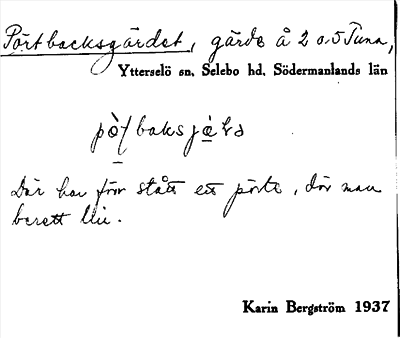 Pörtbacksgärdet, gärde å 2 o. 5 Tuna,
Ytterselö sn, Selebo hd, Södermanlands län
Där har förr stått ett pörte, där man
berett lin.
Karin Bergström 1937